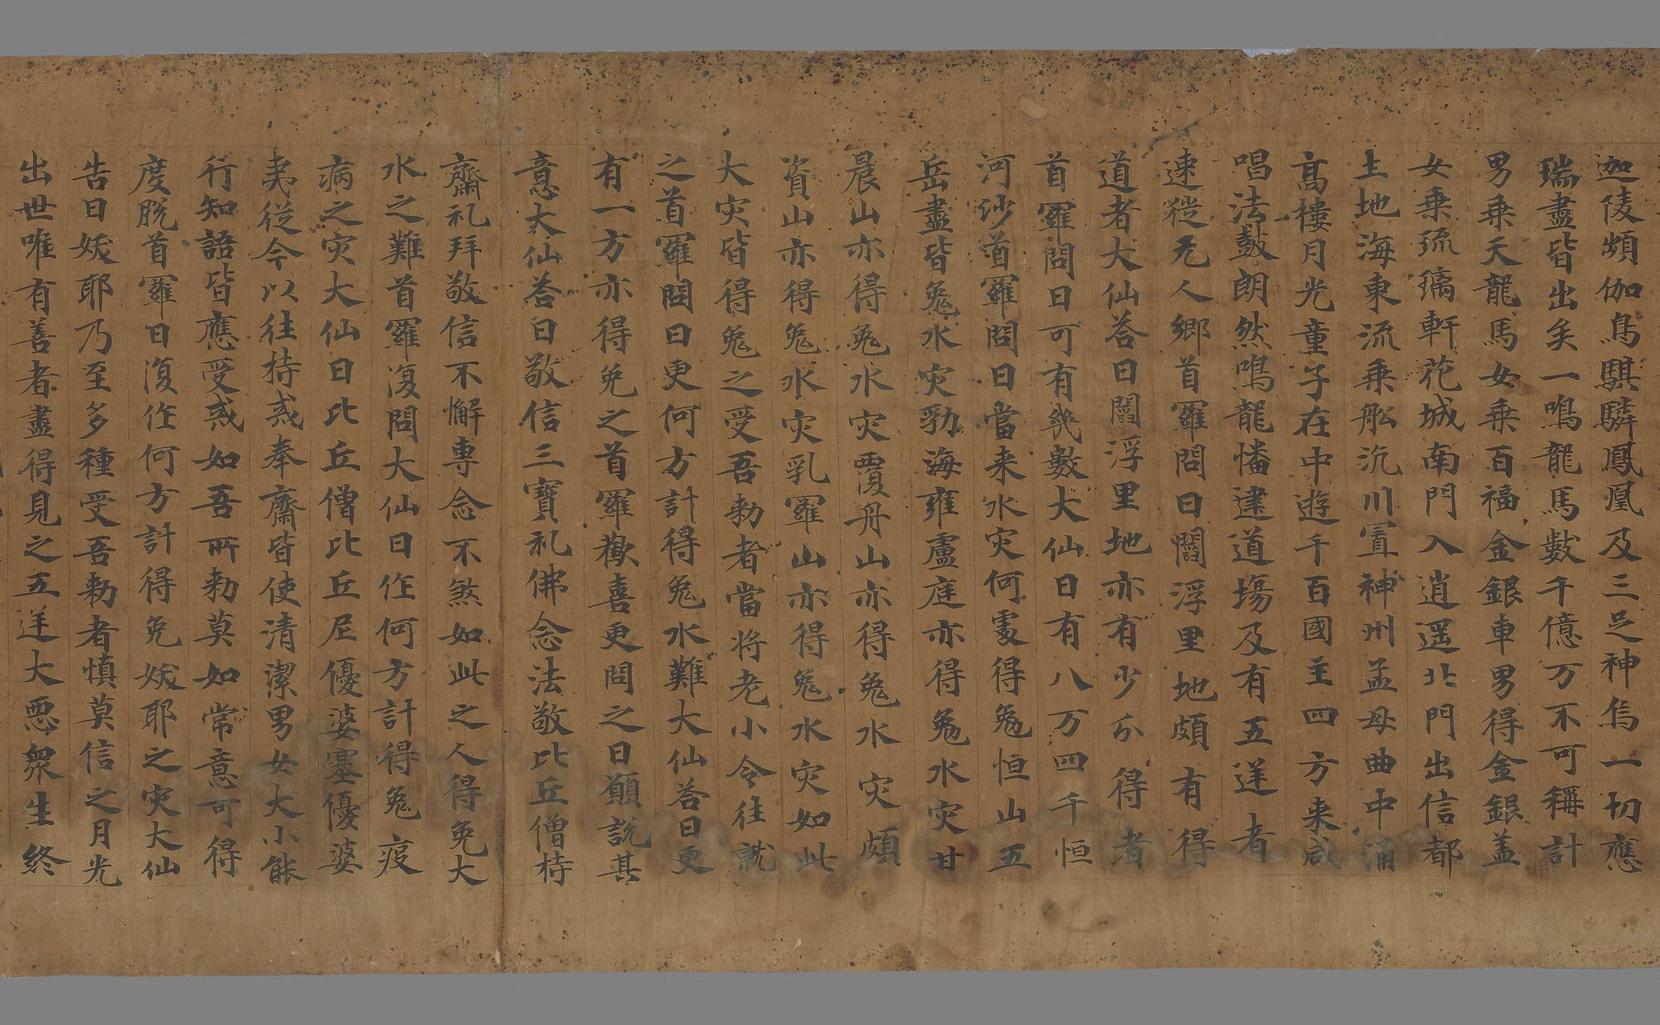 迦陵頻伽鳥騏驎鳳凰及三足神烏一切應
瑞盡皆出矣一鳴龍馬數千億万不可稱計
男乘天龍馬女乘百福金銀車男得金銀盖
女乘琉璃軒花城南門入逍遥北門出信都
土地海東流乘舩汎川置神州孟母曲中涌
高樓月光童子在中遊千百國主四方来咸
唱法鼓朗然鳴龍幡建道場及有五逆者
速從元人鄉首羅問曰閻浮里地頗有得
道者大仙荅曰閻浮里地亦有少尒得者
首羅問曰可有幾數大仙曰有八万四千恒
河沙首羅問曰當来水灾何處得兔恒山五
岳盡皆兔水灾勃海雍盧庭亦得兔水灾甘
晨山亦得兔水灾覆舟山亦得兔水灾頗
資山亦得兔水灾乳羅山亦得兔水灾如此
大灾皆得兔之受吾勑者當将老小令往就
之首羅問曰更何方計得兔水難大仙荅曰更
有一方亦得免之首羅歡喜更問之曰願說其
意大仙荅曰敬信三寶礼佛念法敬比丘僧持
齋礼拜敬信不懈專念不煞如此之人得免大
水之難首羅復問大仙曰作何方計得兔疫
病之灾大仙曰比丘僧比丘尼優婆塞優婆
夷從今以往持戒奉齋皆使清潔男女大小能
行知語皆應受戒如吾所勑莫如常意可得
度脱首羅曰復作何方計得免妖耶之灾大仙
告曰妖耶乃至多種受吾勑者慎莫信之月光
出世唯有善者盡得見之五逆大惡衆生終